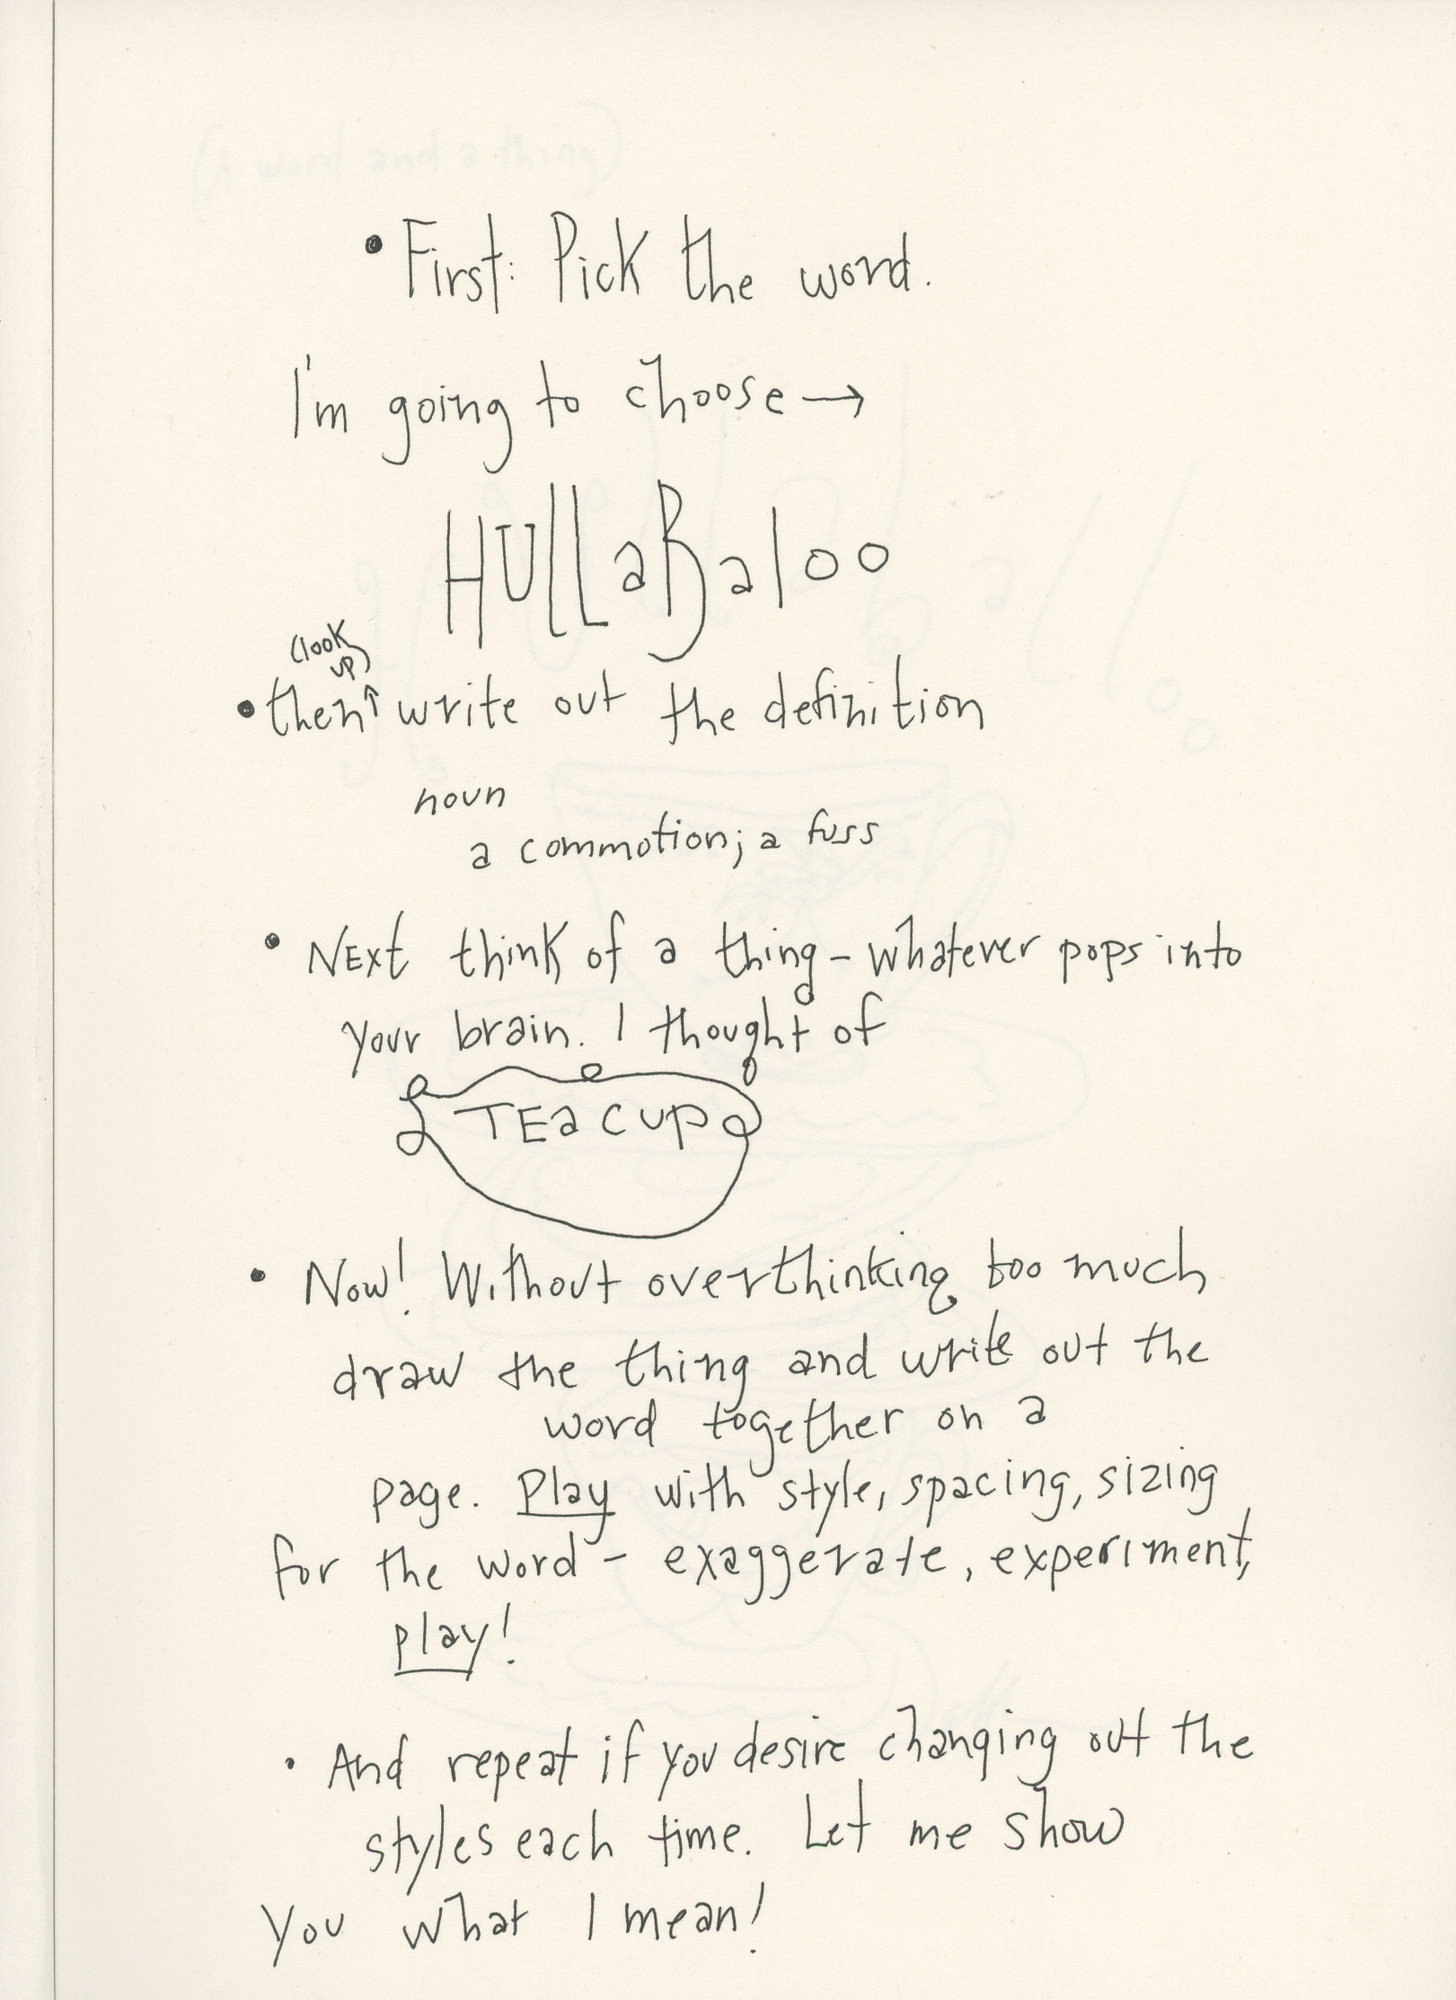 (A word and a thing)
• First: Pick the word.
I'm going to choose →
HULLaBaloo
(look
up)
• then↑ write out the definition
noun
a commotion; a fuss
• NExt think of a thing - whatever pops into
your brain. I thought of
TEacup
• Now! Without overthinking too much
draw the thing and write out the
word together on a
page. Play with style, spacing, sizing
for the word - exaggerate, experiment,
play!
• And repeat if you desire changing out the
styles each time. Let me show
you what I mean!